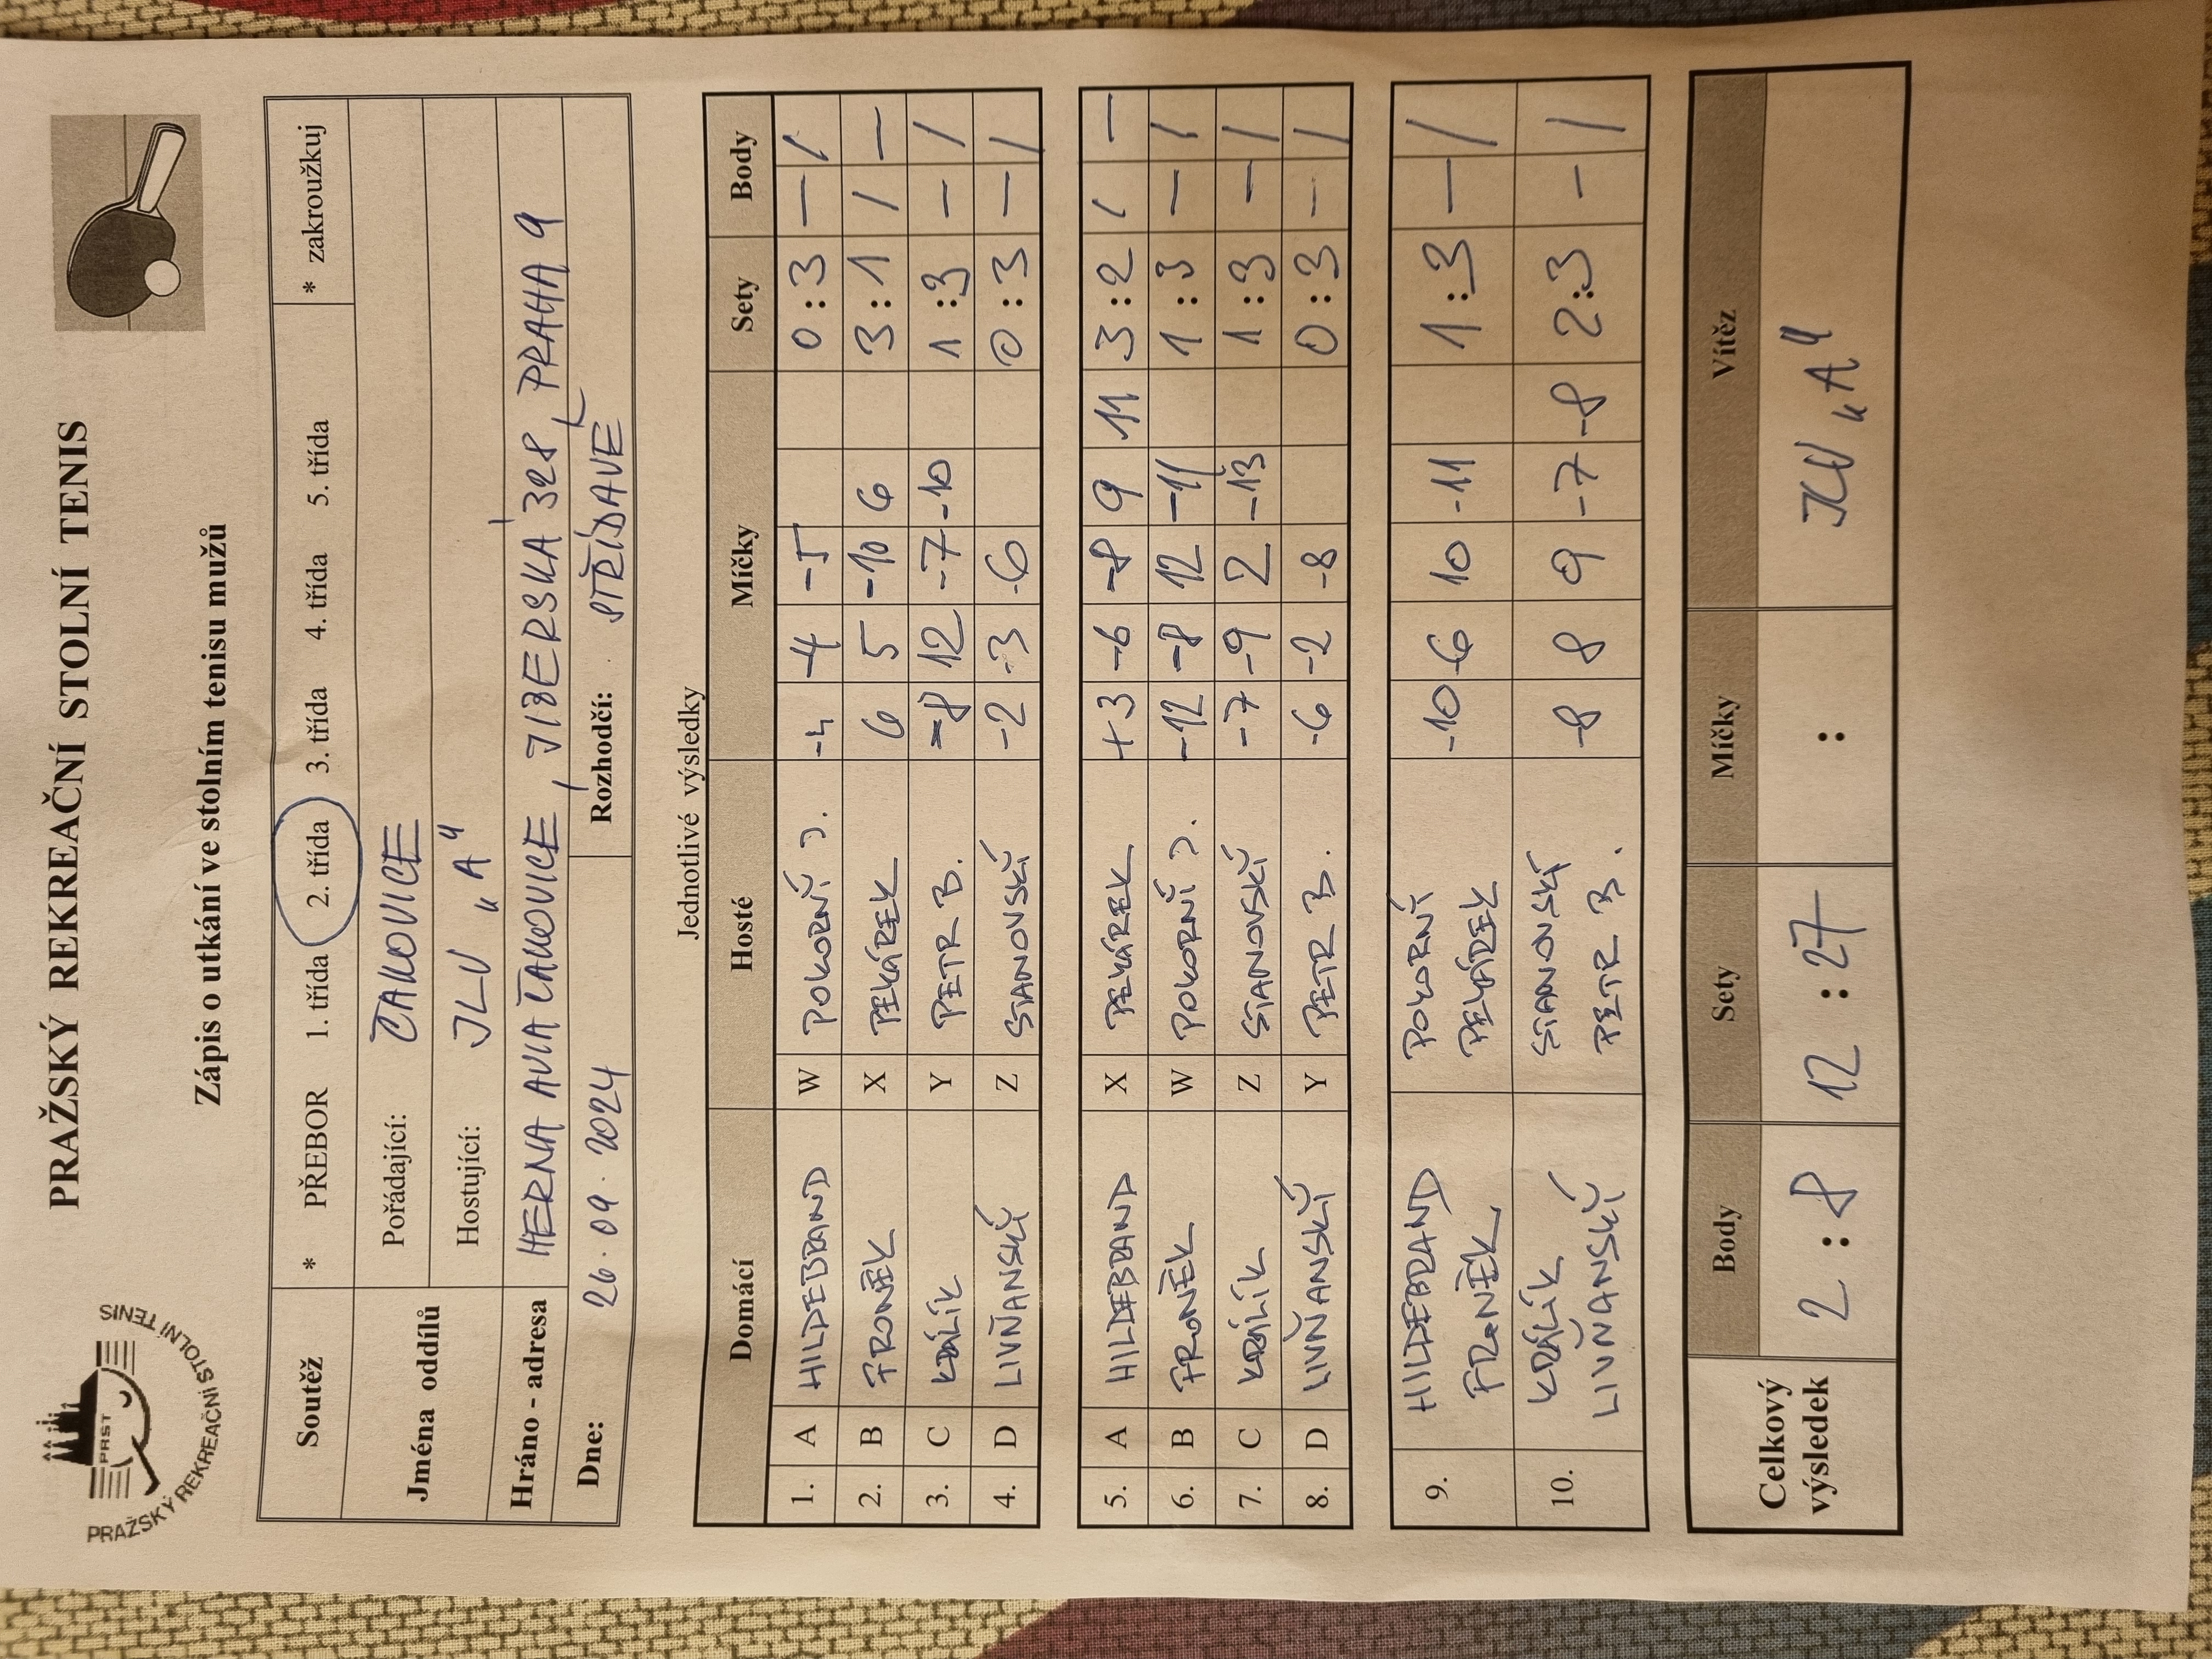 PRAŽSKÝ REKREAČNÍ STOLNÍ TENIS
PRST
PRAŽSKÝ REKREAČNÍ STOLNÍ TENIS
Zápis o utkání ve stolním tenisu mužů
Soutěž * PŘEBOR 1. třída 2. třída 3. třída 4. třída 5. třída * zakroužkuj
Jména oddílů Pořádající: ČAKOVICE
Hostující: JLV „A"
Hráno - adresa HERNA AVIA ČAKOVICE, JIZERSKÁ 328, PRAHA 9
Dne: 26.09.2024 Rozhodčí: STŘÍDAVĚ
Jednotlivé výsledky
Domácí Hosté Míčky Sety Body
1. A HILDEBRAND W POKORNÍ J. -4 -4 -5 0:3 — /
2. B FRONĚK X PEKÁREK 6 5 -10 6 3:1 / —
3. C KRÁLÍK Y PETR B. -8 12 -7 -10 1:3 — /
4. D LIVŇANSKÍ Z STANOVSKÍ -2 -3 -6 0:3 — /
5. A HILDEBRAND X PEKÁREK +3 -6 -8 9 11 3:2 / —
6. B FRONĚK W POKORNÍ J. -12 -8 12 -11 1:3 — /
7. C KRÁLÍK Z STANOVSKÍ -7 -9 2 -13 1:3 — /
8. D LIVŇANSKÍ Y PETR B. -6 -2 -8 0:3 — /
9. HILDEBRAND POKORNÍ -10 -6 10 -11 1:3 — /
FRONĚK PEKÁREK
10. KRÁLÍK STANOVSKÍ -8 8 9 -7 -8 2:3 — /
LIVŇANSKÍ PETR B.
Celkový výsledek Body Sety Míčky Vítěz
2:8 12:27 : JLV „A"